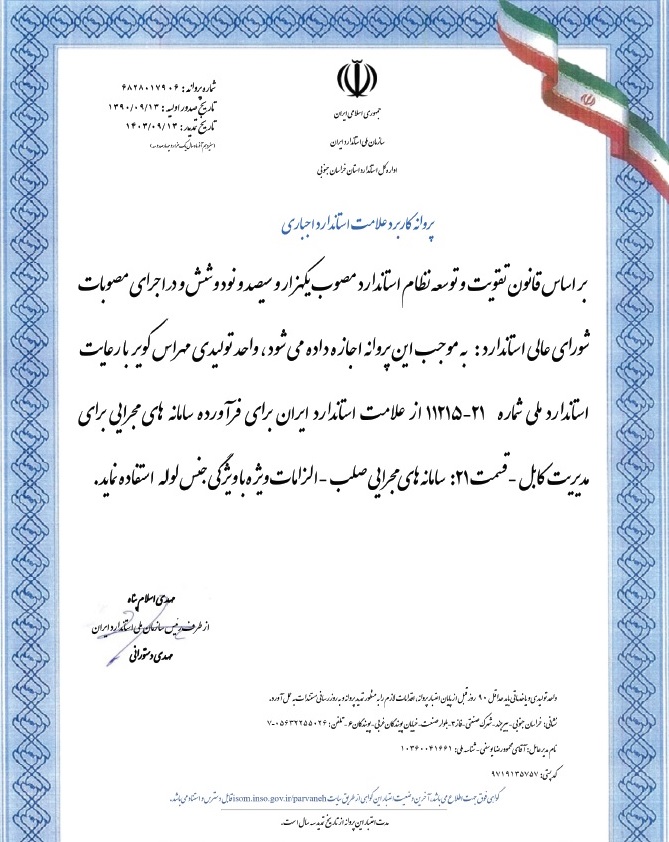 شماره پروانه: ۶۸۲۸۰۱۷۹۰۶
تاریخ صدور اولیه: ۱۳۹۰/۰۹/۱۳
تاریخ تمدید: ۱۴۰۳/۰۹/۱۳
جمهوری اسلامی ایران
سازمان ملی استاندارد ایران
اداره کل استاندارد استان خراسان جنوبی
پروانه کاربرد علامت استاندارد اجباری
بر اساس قانون تقویت و توسعه نظام استاندارد مصوب یکهزار و سیصد و نود و شش و در اجرای مصوبات
شورای عالی استاندارد: به موجب این پروانه اجازه داده می شود، واحد تولیدی مهراس کویر با رعایت
استاندارد ملی شماره ۲۱-۱۱۲۱۵ از علامت استاندارد ایران برای فرآورده سامانه های مجرایی برای
مدیریت کابل - قسمت ۲۱: سامانه های مجرایی صلب - الزامات ویژه با ویژگی جنس لوله استفاده نماید.
مهدی اسلام پناه
از طرف رئیس سازمان ملی استاندارد ایران
مهدی دستورانی
واحد تولیدی و یا خدماتی باید حداقل ۹۰ روز قبل از پایان اعتبار پروانه، اقدامات لازم را به منظور تمدید پروانه و به روز رسانی مستندات به عمل آورد.
نشانی: خراسان جنوبی - بیرجند - شهرک صنعتی - فاز ۲ - بلوار صنعت - خیابان پویندگان غربی - پویندگان ۶ - تلفن: ۰۵۶۳۲۲۵۵۰۲۶-۷
نام مدیر عامل: آقای محمودرضا یوسفی - شناسه ملی: ۱۰۳۶۰۰۴۱۶۶۱
کد پستی: ۹۷۱۹۱۳۵۷۵۷
گواهی فوق جهت اطلاع می باشد، آخرین وضعیت اعتبار این گواهی از طریق سایت isom.inso.gov.ir/parvaneh قابل دسترس و استناد می باشد.
مدت اعتبار این پروانه از تاریخ تمدید سه سال است.